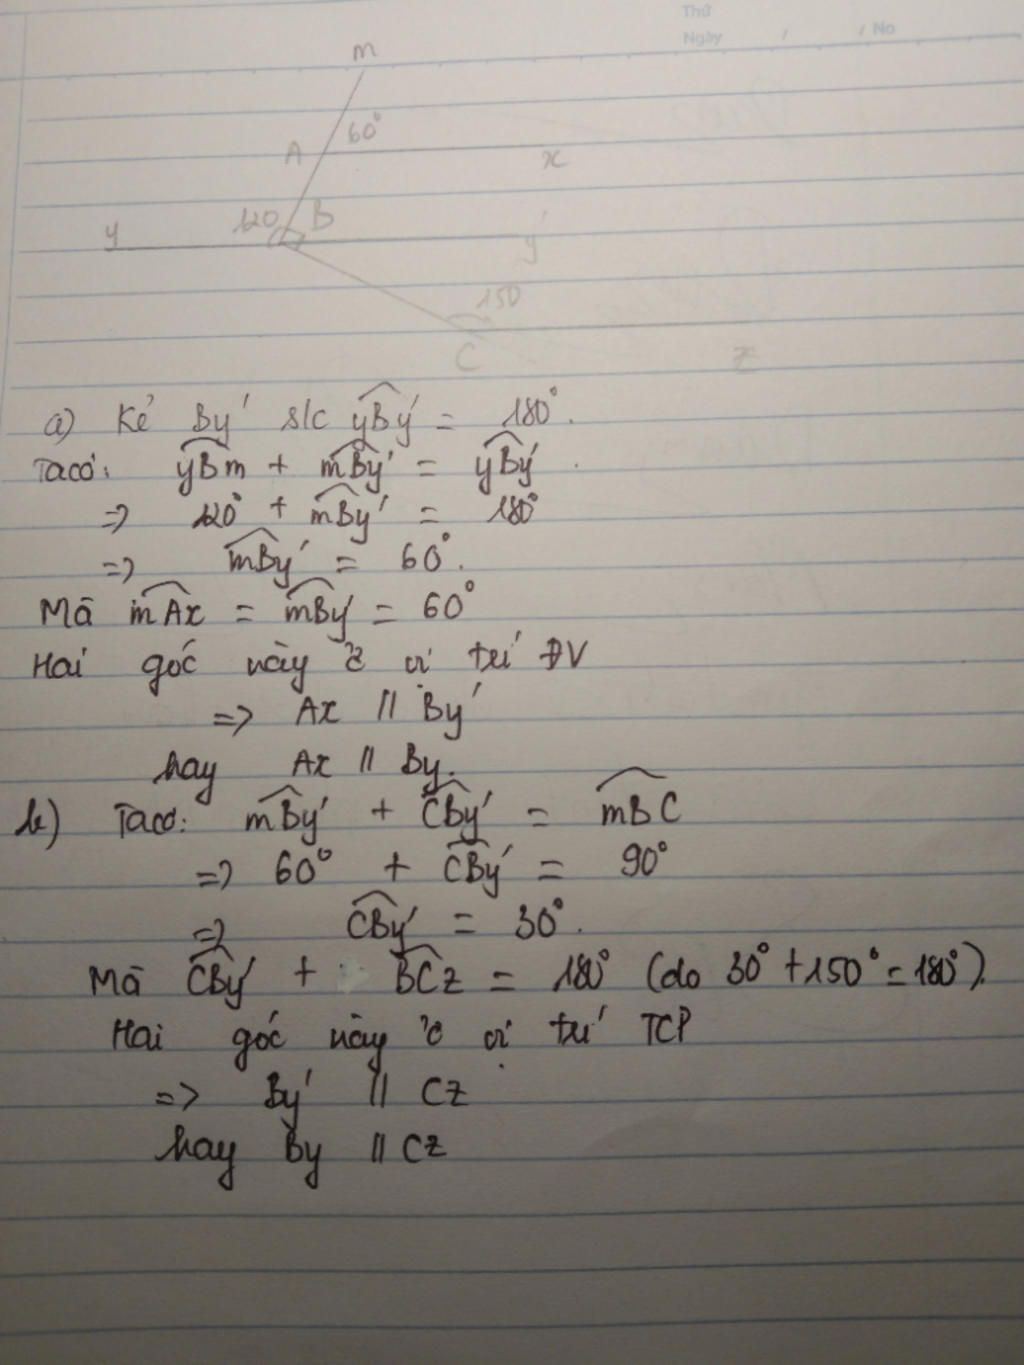 Thứ
Ngày / / No
m
60°
A
x
120
B
y
y'
150
C
z
a) Kẻ By' s/c yBy' = 180°.
Taco: yBm + mBy' = yBy'.
=> 120° + mBy' = 180°
=> mBy' = 60°.
Mà mAx = mBy' = 60°
Hai góc này ở vị trí ĐV
=> Ax // By'
hay Ax // By.
b) Taco: mBy' + CBy' = mBC
=> 60° + CBy' = 90°
=> CBy' = 30°.
Mà CBy' + BCz = 180° (do 30° + 150° = 180°).
Hai góc này ở vị trí TCP
=> By' // Cz
hay By // Cz